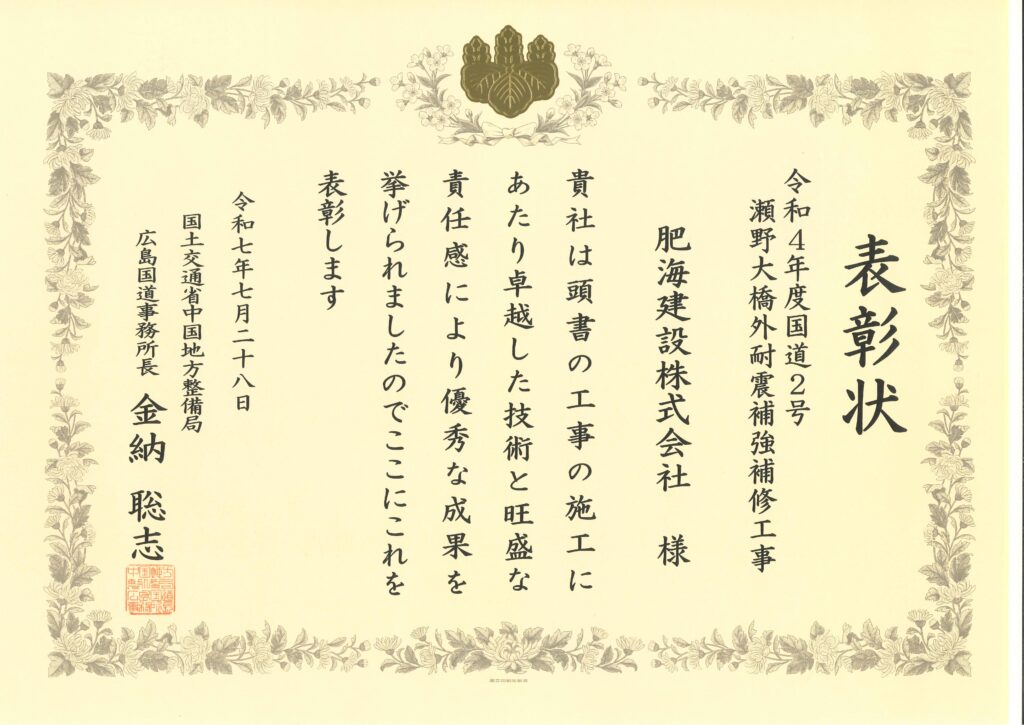 表彰状
令和4年度国道2号
瀬野大橋外耐震補強補修工事
肥海建設株式会社 様
貴社は頭書の工事の施工に
あたり卓越した技術と旺盛な
責任感により優秀な成果を
挙げられましたのでここにこれを
表彰します
令和七年七月二十八日
国土交通省中国地方整備局
広島国道事務所長 金納 聡志